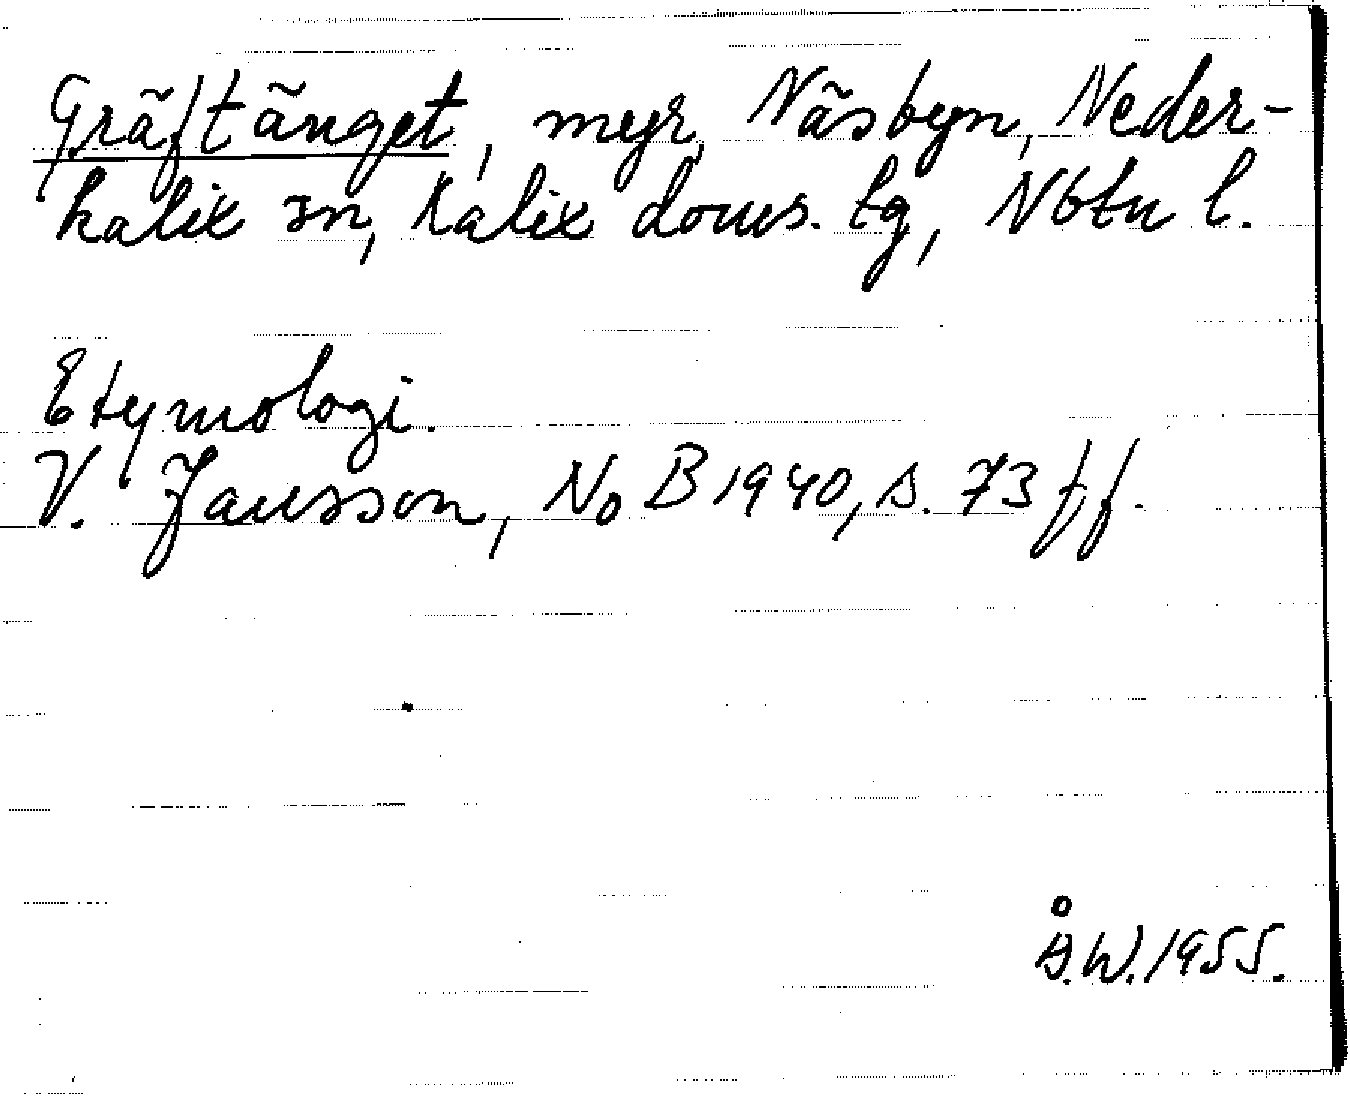 Gräftänget, myr, Näsbyn, Neder-
kalix sn, Kalix doms. tg, Nbtn l.
Etymologi.
V. Jansson, NoB 1940, s. 73 ff.
Å.W. 1955.